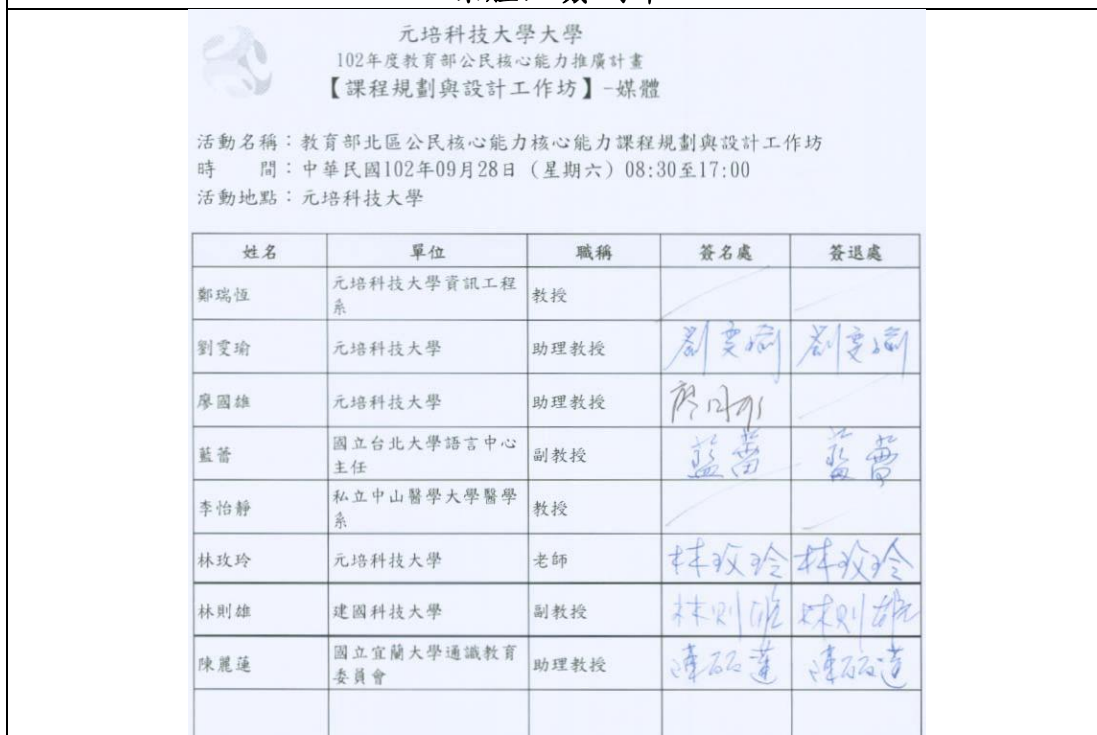 元培科技大學大學
102年度教育部公民核心能力推廣計畫
【課程規劃與設計工作坊】-媒體
活動名稱：教育部北區公民核心能力核心能力課程規劃與設計工作坊
時　　間：中華民國102年09月28日（星期六）08:30至17:00
活動地點：元培科技大學
姓名 單位 職稱 簽名處 簽退處
鄭瑞恆 元培科技大學資訊工程系 教授
劉雯瑜 元培科技大學 助理教授 劉雯瑜 劉雯瑜
廖國雄 元培科技大學 助理教授
藍蕾 國立台北大學語言中心主任 副教授 藍蕾 藍蕾
李怡靜 私立中山醫學大學醫學系 教授
林玫玲 元培科技大學 老師 林玫玲 林玫玲
林則雄 建國科技大學 副教授 林則雄 林則雄
陳麗蓮 國立宜蘭大學通識教育委員會 助理教授 陳麗蓮 陳麗蓮